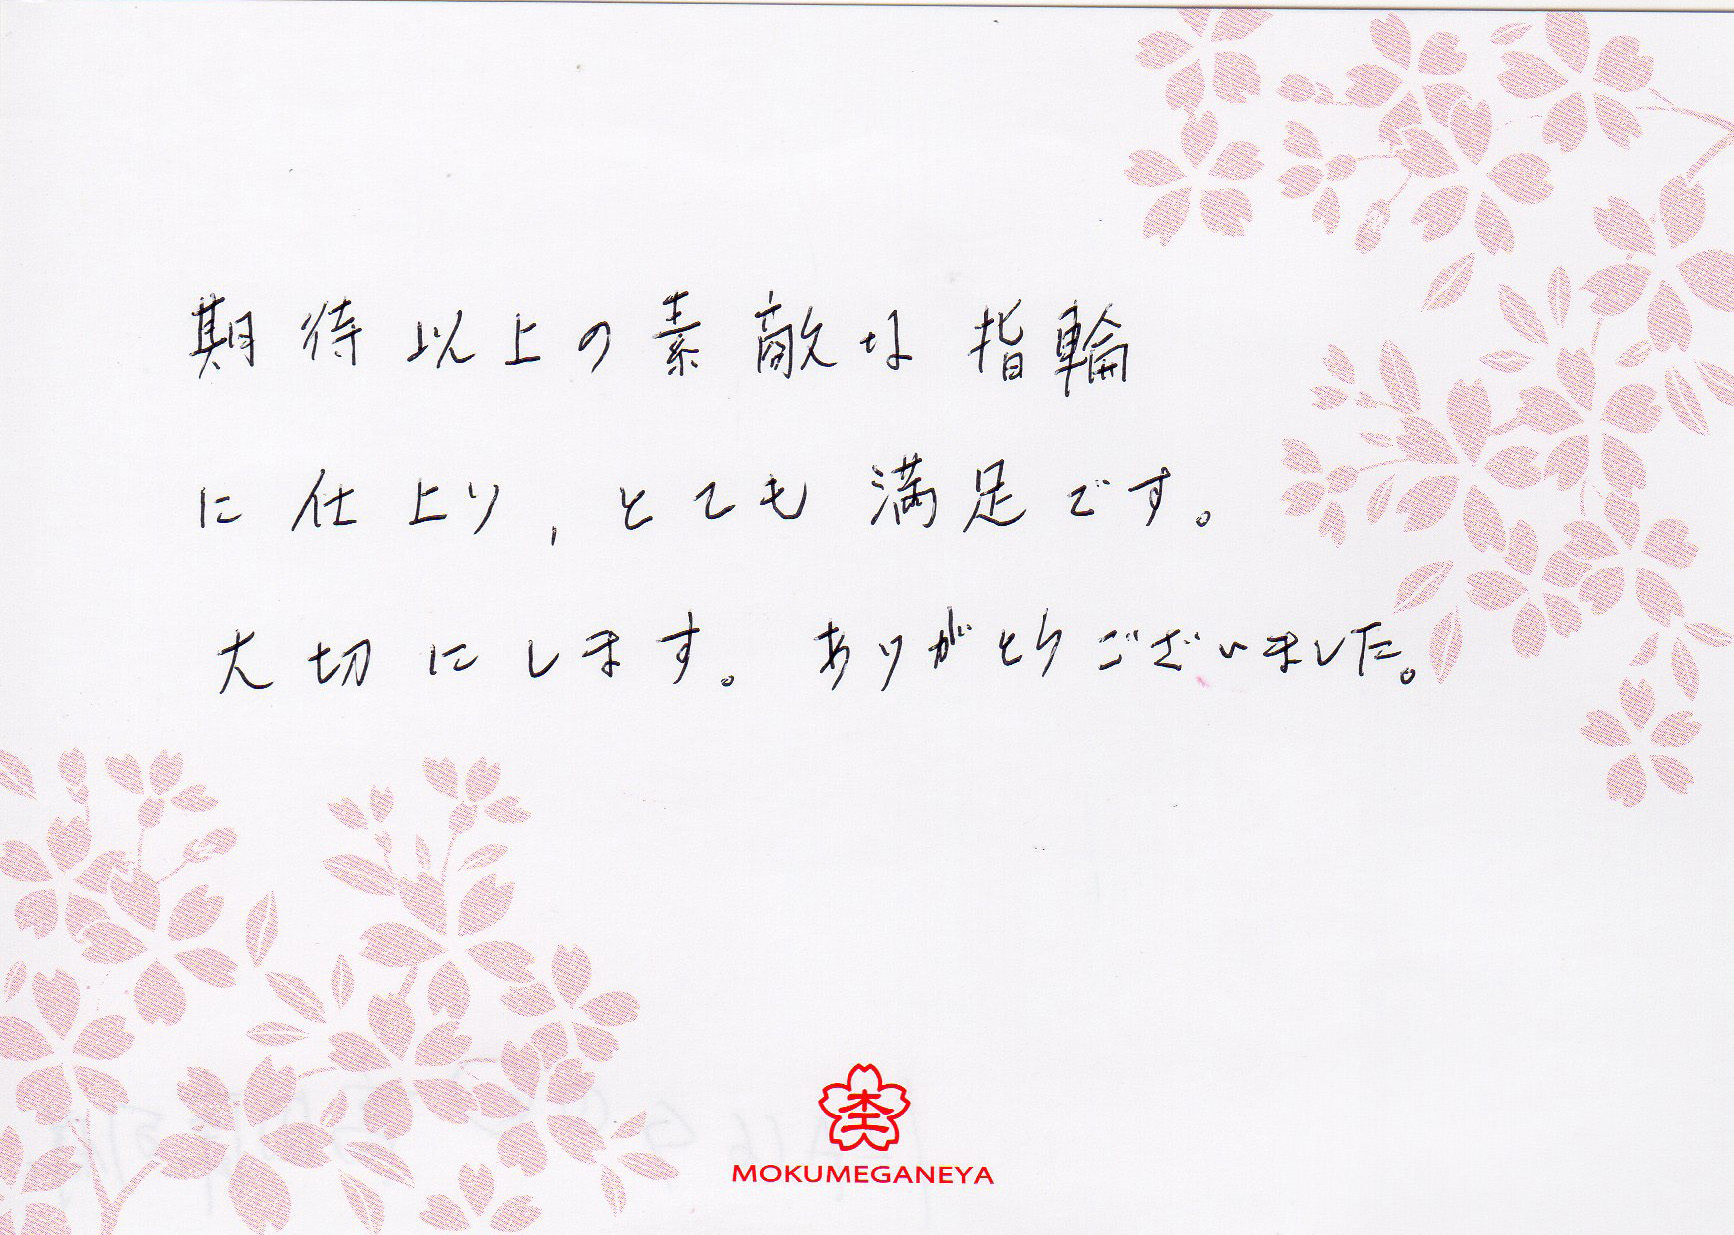 期待以上の素敵な指輪
に仕上り、とても満足です。
大切にします。ありがとうございました。
MOKUMEGANEYA